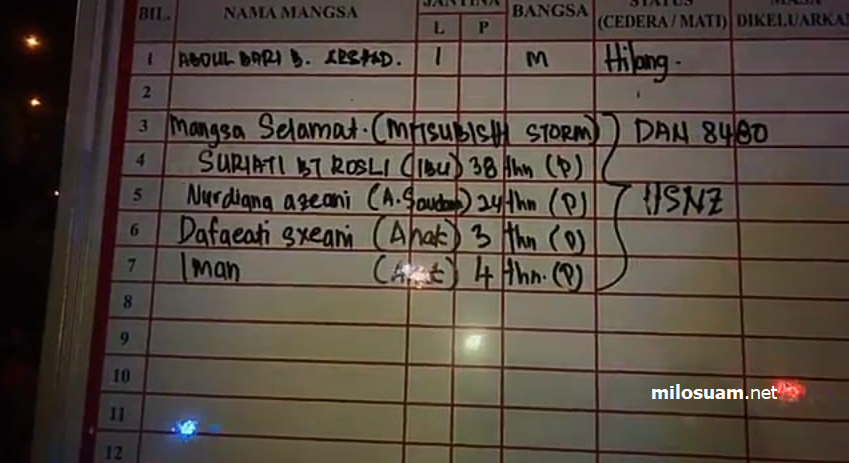 BIL. NAMA MANGSA JANTINA BANGSA STATUS MASA
L P (CEDERA / MATI) DIKELUARKAN
1 ABDUL BARI B. 1 M Hilang.
2
3 Mangsa Selamat. (MITSUBISHI STORM) DAN 8480
4 SURIATI BT ROSLI (IBU) 38 thn (P)
5 Nurdiana azeani (A. Saudara) 24 thn (P) HSNZ
6 Dafaeati sxeani (Anak) 3 thn (P)
7 Iman (Anak) 4 thn. (P)
8
9
10
milosuam.net
11
12